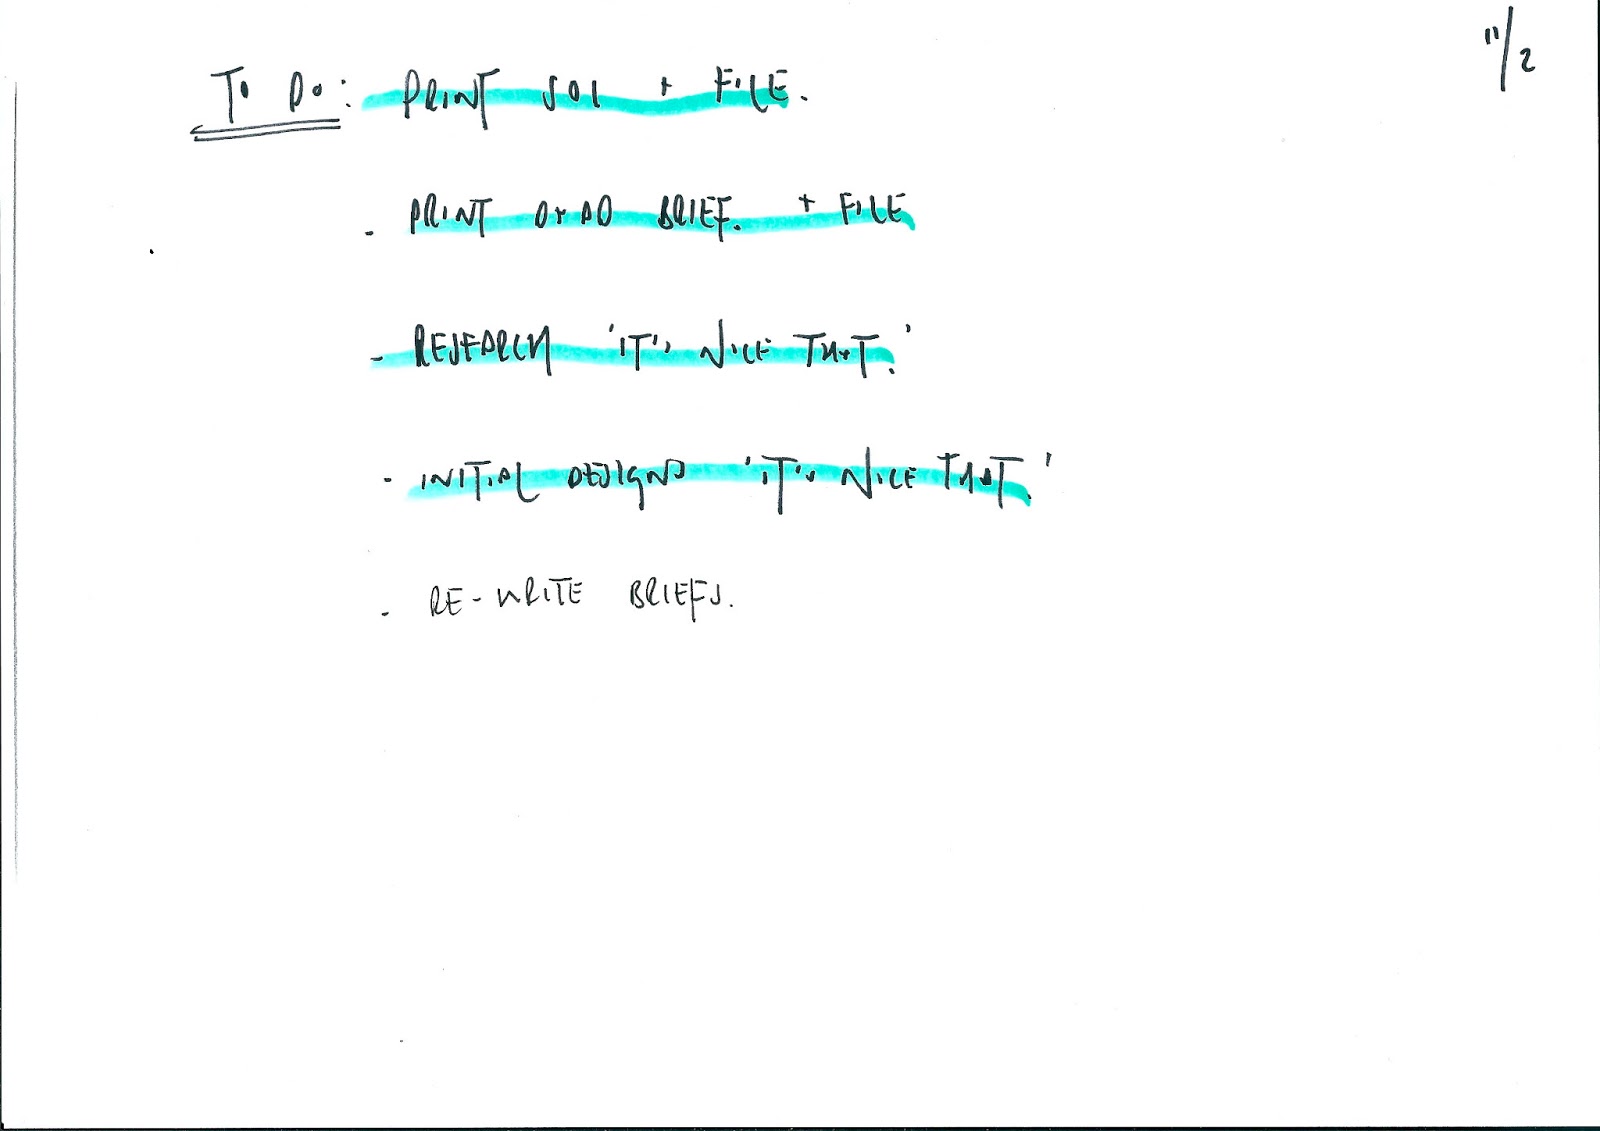 11/2
TO DO: PRINT SOI + FILE.
- PRINT D+AD BRIEF. + FILE
- RESEARCH 'IT'S NICE THAT.'
- INITIAL DESIGNS 'IT'S NICE THAT.'
- RE-WRITE BRIEFS.